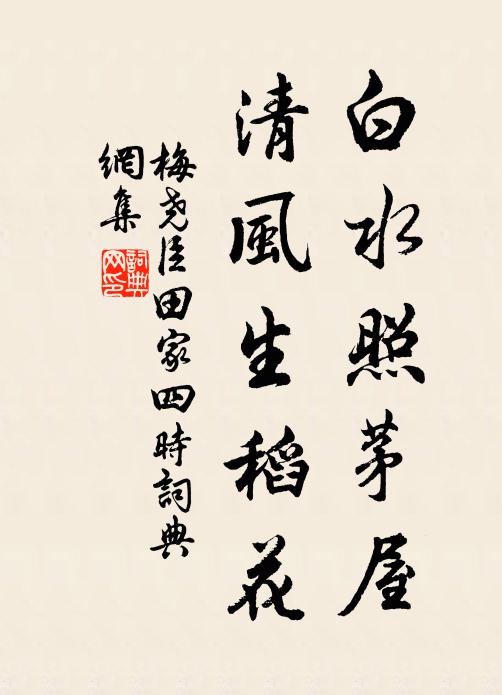 白水照茅屋
清風生稻花
梅尧臣田家四時詞典
網集
詞典
网印